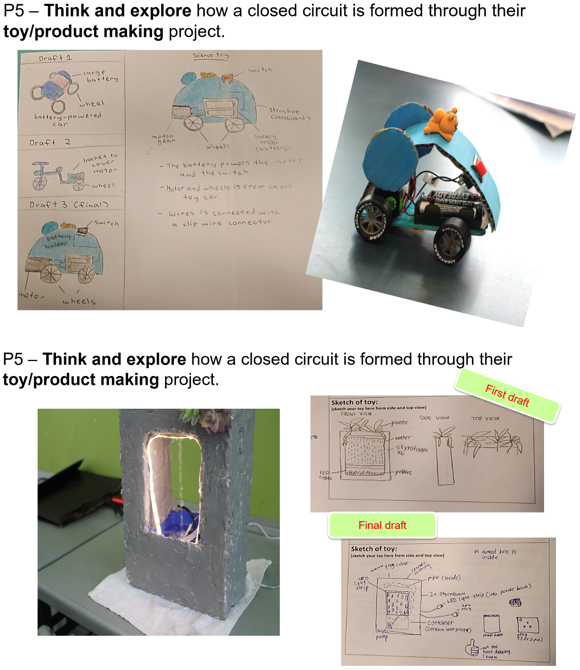 P5 – Think and explore how a closed circuit is formed through their
toy/product making project.
Draft 1
large
battery
wheel
battery-powered
car
Draft 2
basket to
cover
motor
wheel
Draft 3 (final)
switch
battery
holder
motor
wheels
Science toy
switch
structure
(cardboard)
motor
gear
wheels
battery
holder
(battery)
- The battery powers the motor
and the switch
- Motor and wheels is from an old
toy car
- Wires is connected with
a clip wire connector
P5 – Think and explore how a closed circuit is formed through their
toy/product making project.
First draft
Sketch of toy:
(sketch your toy here from side and top view)
FRONT VIEW
SIDE VIEW
TOP VIEW
plants
water
styrofoam
LED
pebbles
Final draft
Sketch of toy:
(sketch your toy here from side and top view)
inside
LED
light
strip
pipe (inside)
2x styrofoam
LED light strip (into power bank)
container
pump
power bank